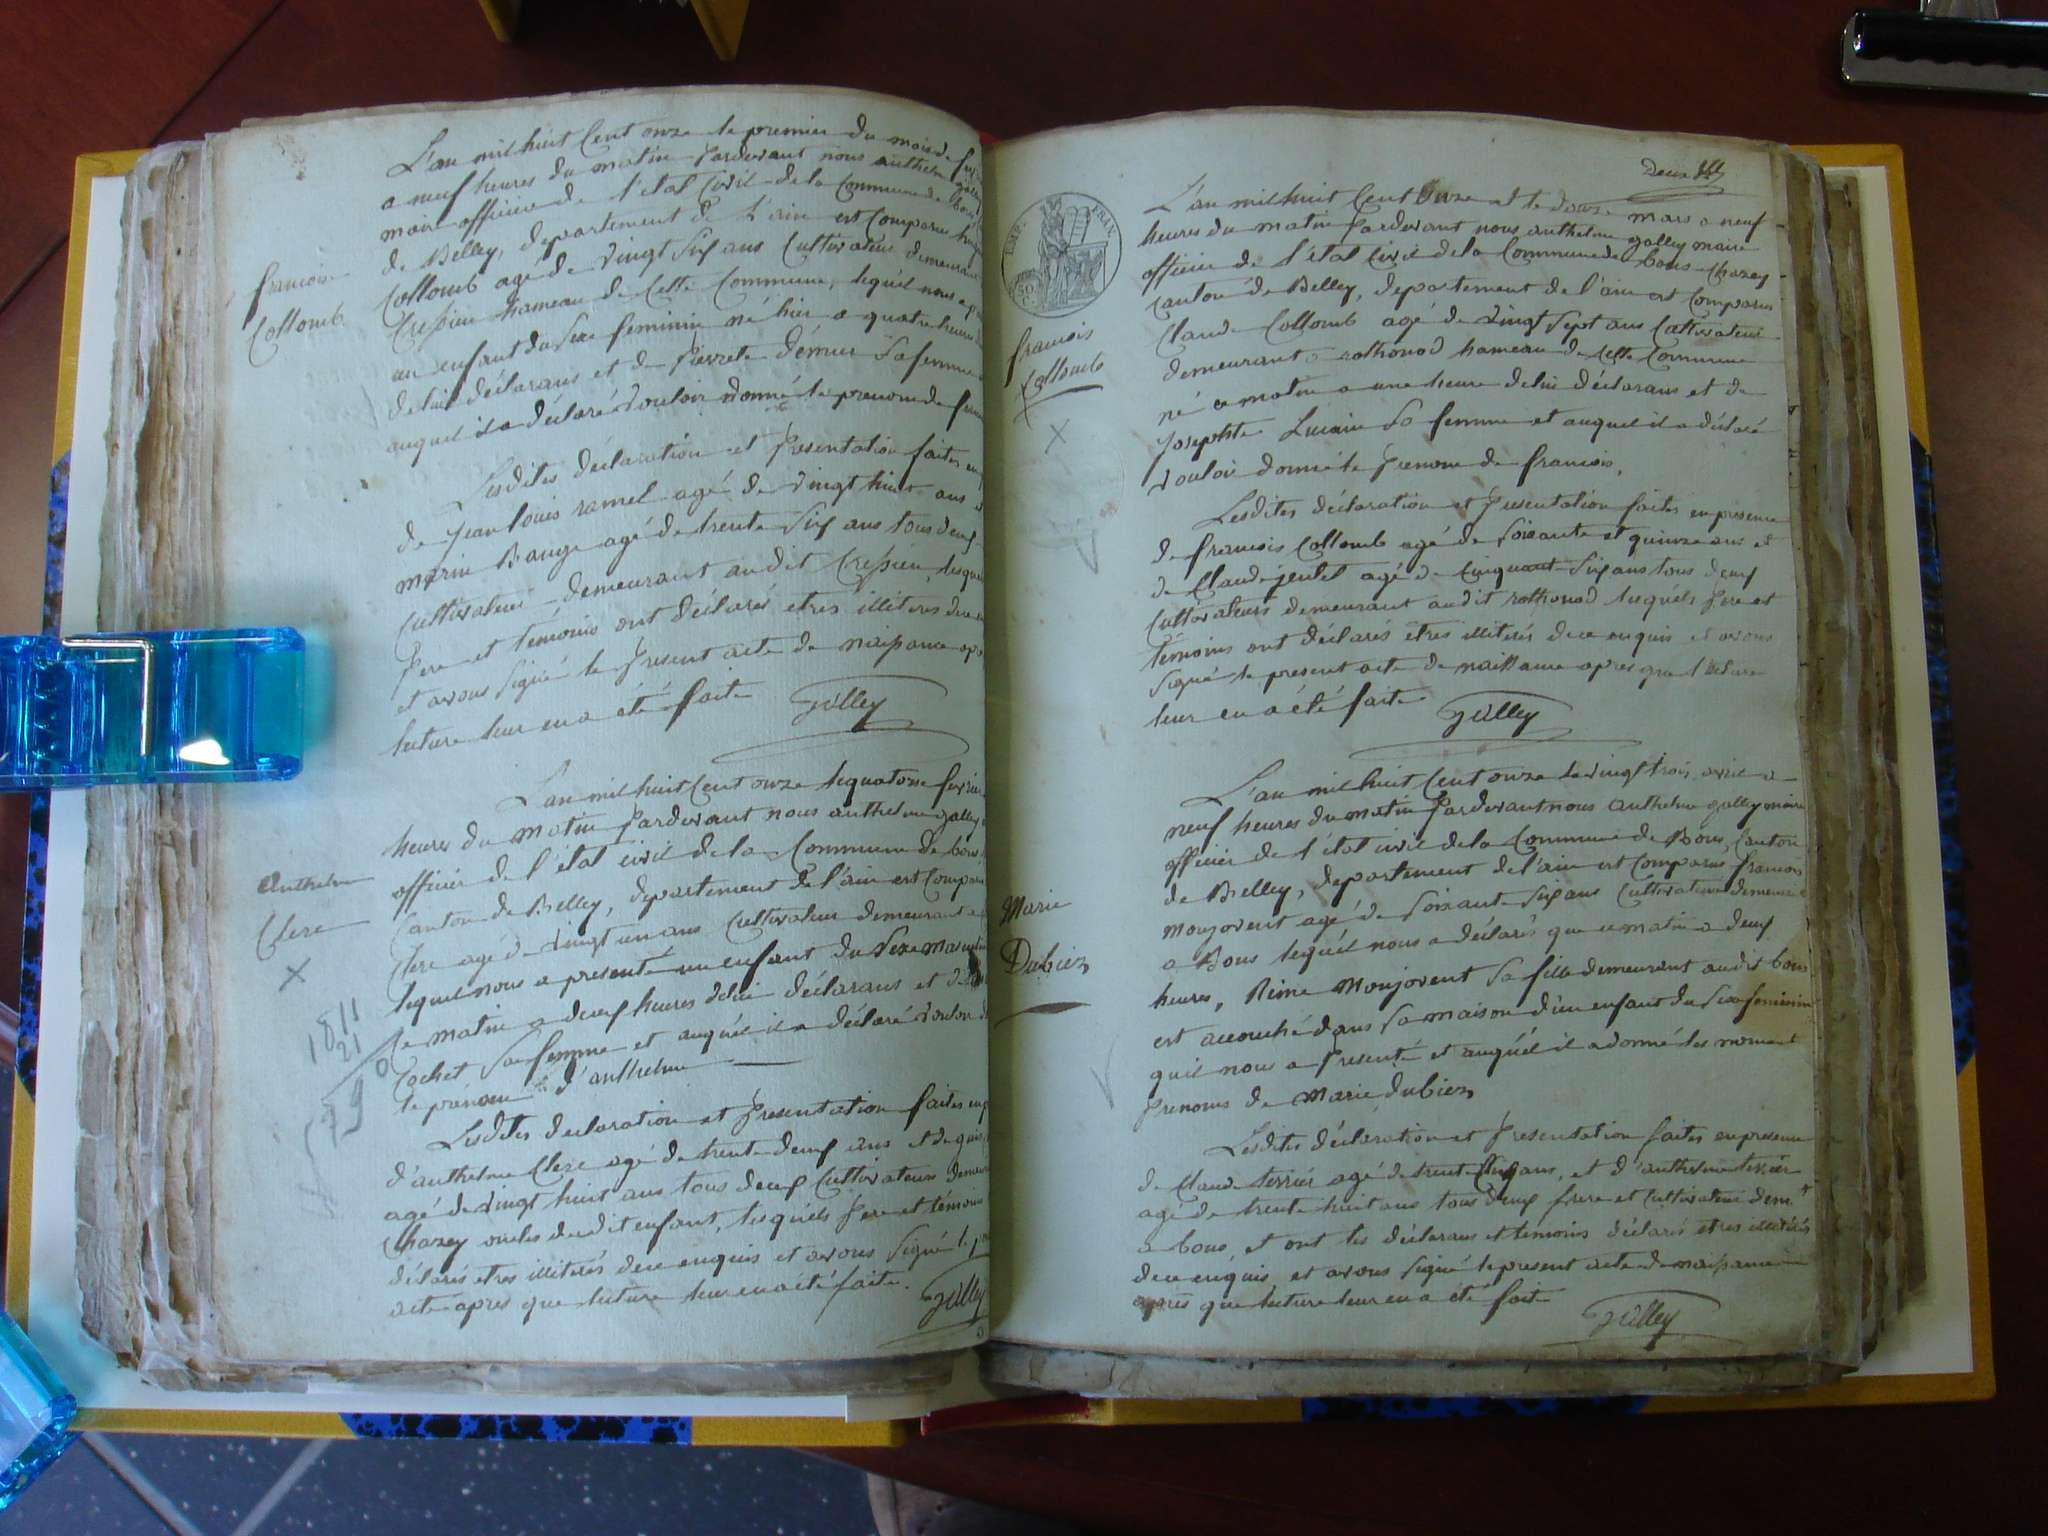 L'an mil huit Cent onze le premier du mois de
a neuf heures du matin Pardevant nous anthelme
maire officier de l'état Civil de la Commune de
de Belley, departement de l'ain est Comparu
françoise
Collomb
Collomb age de vingt Six ans Cultivateur demeurant
Crepieu hameau de Cette Commune, lequel nous a
un enfant du Sexe feminin né hier a quatre heures
de lui déclarans et de Pierrete démur Sa femme
auquel il a déclaré vouloir donné le prenom de
Lesdites déclaration et Presentation faites en
de Jean louis ramel agé de vingt huit ans
marin Bange agé de trente Six ans tous deux
Cultivateurs demeurant audit Crepieu, lesquels
Pere et témoins ont déclarés etres illiterés de ce
et avons Signé le Present acte de naissance
lecture leur en a été faite
Galley
L'an mil huit Cent onze le quatorze fevrier
heures du matin Pardevant nous anthelme galley
officier de l'état civil de la Commune de bons
Anthelme
Clerc
Canton de Belley, departement de l'ain est Comparu
Clerc agé de vingt un ans Cultivateur demeurant
lequel nous a presenté un enfant du Sexe masculin
Ce matin a deux heures de lui déclarans et de
Cochet Sa femme et auquel il a déclaré vouloir
le prénom d'anthelme
1811
21
Lesdites déclaration et Presentation faites en
d'anthelme Clerc agé de trente deux ans et de
agé de vingt huit ans tous deux Cultivateurs
Chazey oncles dudit enfant, lesquels Pere et témoins
déclarés etres illiterés de ce enquis et avons Signé le
acte apres que lecture leur en a été faite.
Galley
Deux
IMP. FRAN.
50
L'an mil huit Cent Onze et le douze mars a neuf
heures du matin Pardevant nous anthelme galley maire
officier de l'état Civil de la Commune de bons Chazey
Canton de Belley, departement de l'ain est Comparu
Claude Collomb agé de vingt Sept ans Cultivateur
françois
Collomb
demeurant a rothonod hameau de Cette Commune
né ce matin a une heure de lui déclarans et de
Josephte Luiain Sa femme et auquel il a déclaré
vouloir donné le Prenom de francois,
Lesdites déclaration et Presentation faites en presence
de francois Collomb agé de Soixante et quinze ans et
de Claude jentet agé de Cinquant Six ans tous deux
Cultivateurs demeurant audit rothonod lesquels Pere et
témoins ont déclarés etres illiterés de ce enquis et avons
Signé le present acte de naissance apres que lecture
leur en a été faite
Galley
L'an mil huit Cent onze le vingt trois avril a
neuf heures du matin Pardevant nous anthelme galley maire
officier de l'état civil de la Commune de Bons, Canton
de Belley, departement de l'ain est Comparu francois
Marie
Dubiez
monjovent agé de Soixante Six ans Cultivateur demeurant
a Bons lequel nous a déclarés que ce matin a deux
heures, Reine Monjovent Sa fille demeurant audit bons
est accouché dans Sa maison d'un enfant du Sexe feminin
quil nous a Presenté et auquel il a donné les
Prenoms de Marie Dubiez
Lesdites déclaration et Presentation faites en presence
de Claude terrier agé de trente Cinq ans, et d'anthelme terrier
agé de trente huit ans tous deux frere et Cultivateur demt
a bons, et ont les déclarans et temoins déclarés etres illiterés
de ce enquis et avons Signé le present acte de naissance
après que lecture leur en a été faite
Galley